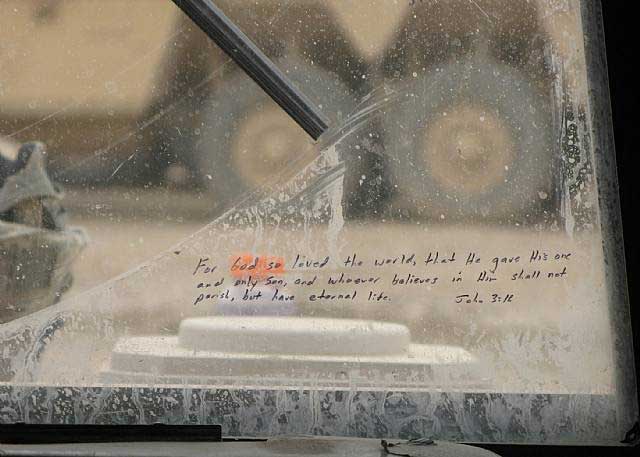 For God so loved the world, that He gave His one
and only Son, and whoever believes in Him shall not
perish, but have eternal life. John 3:16